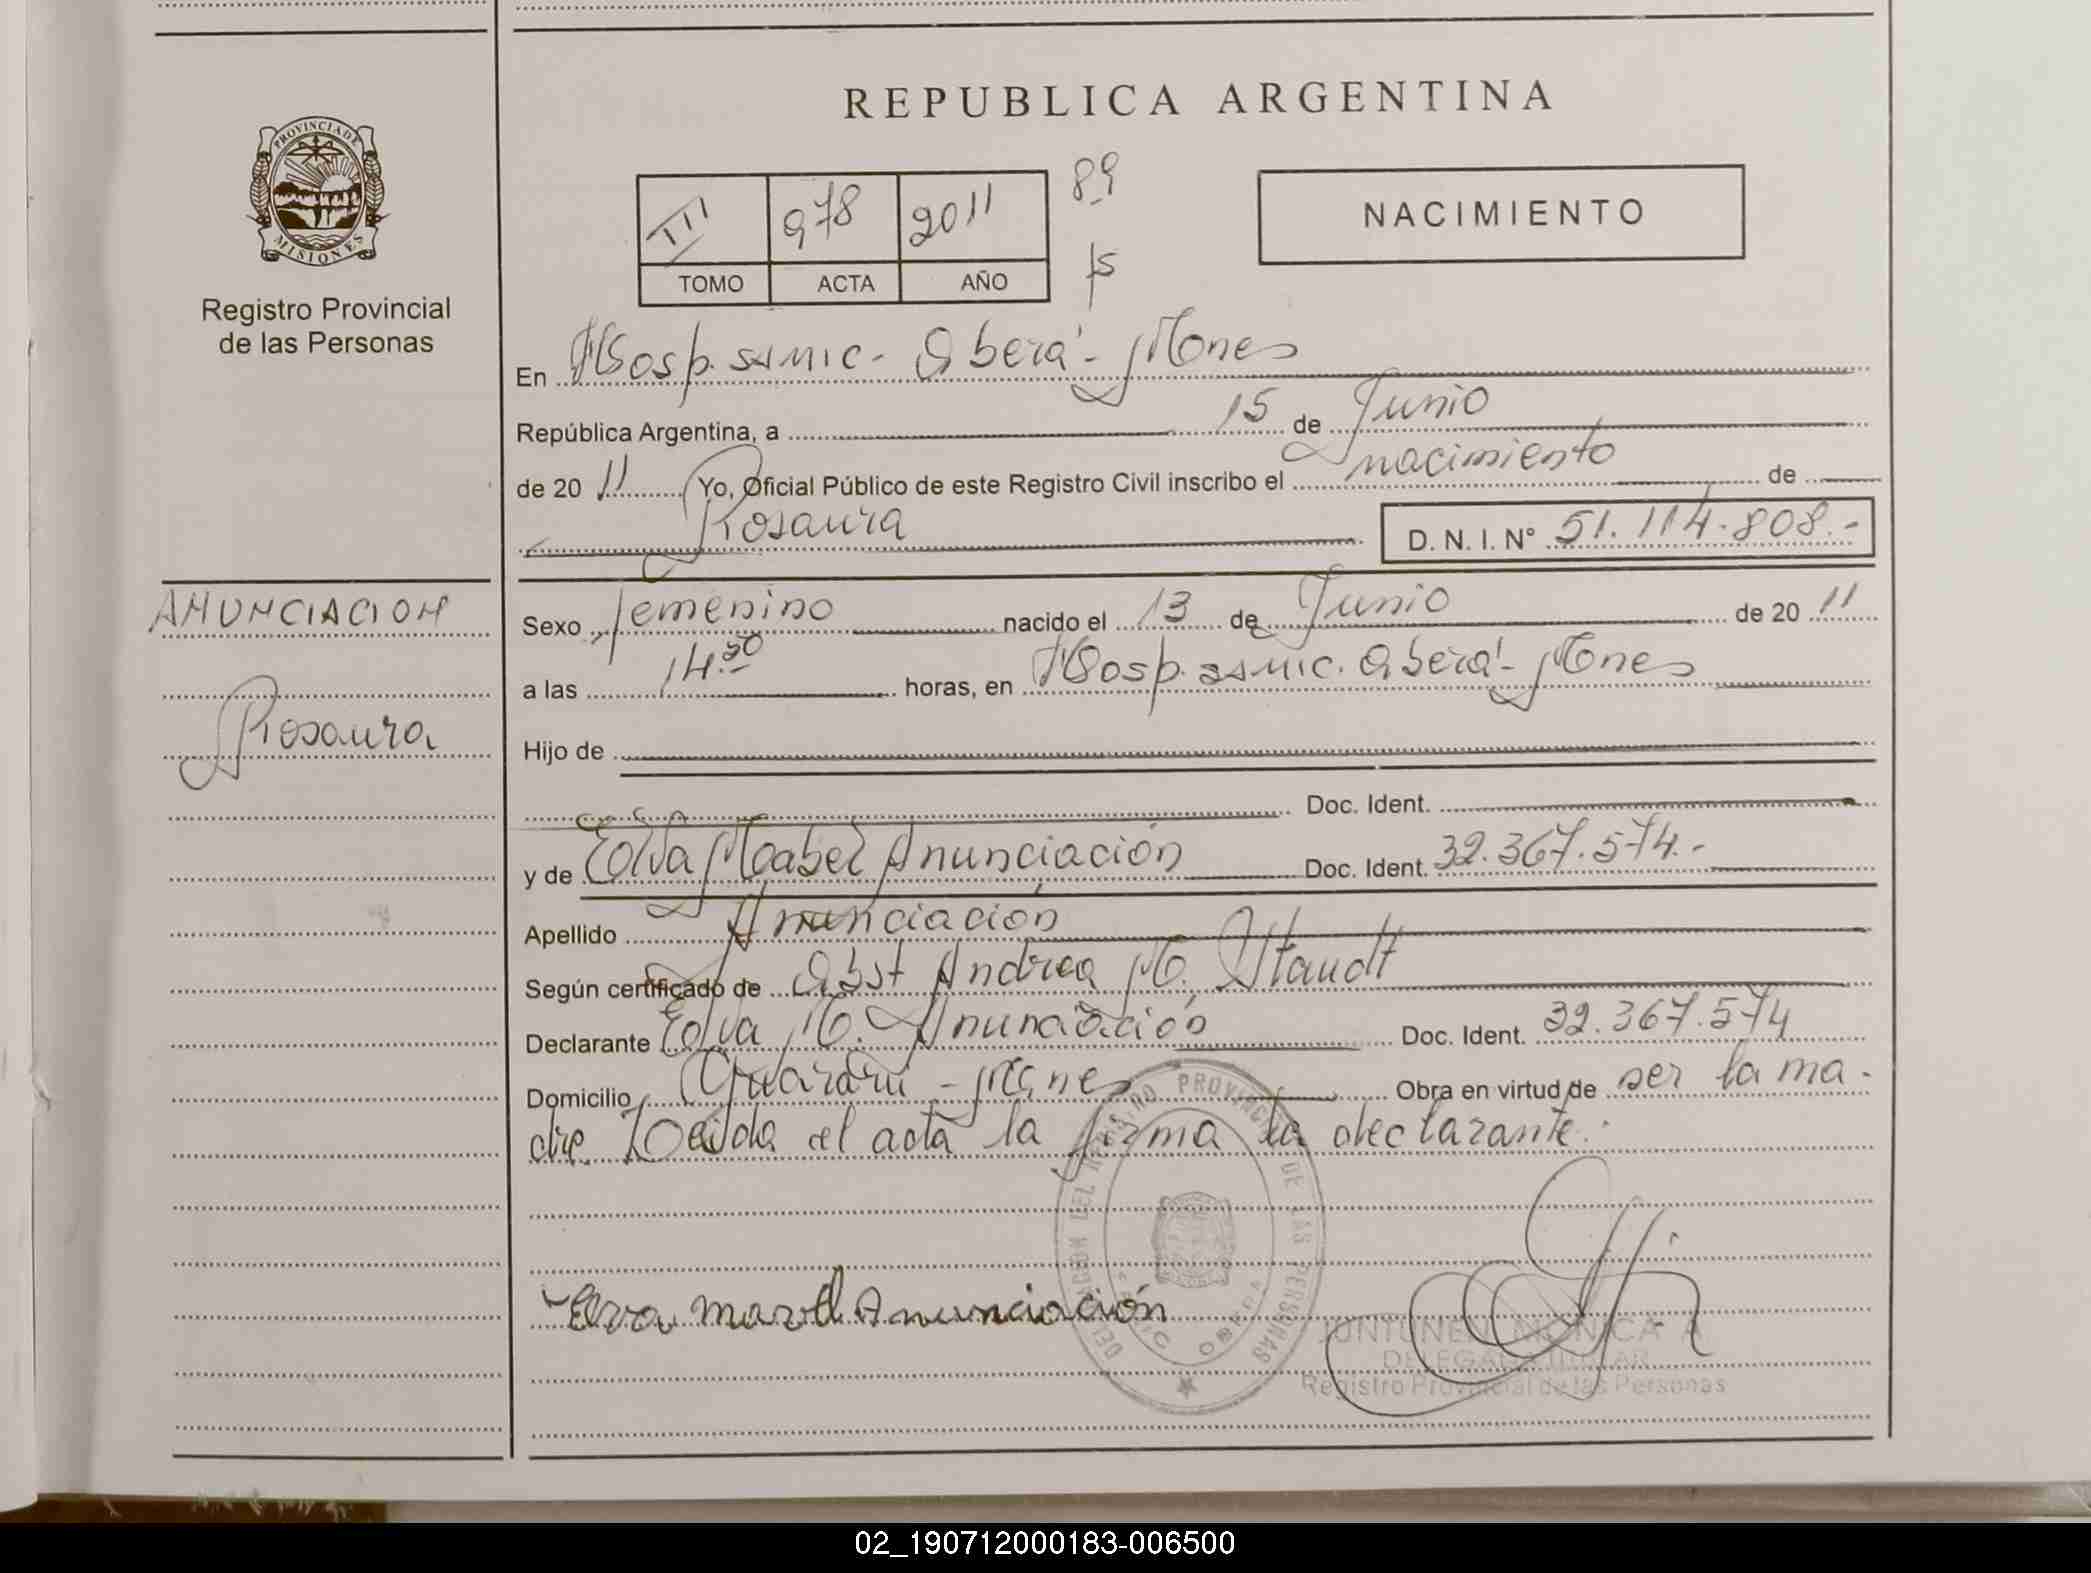 REPUBLICA ARGENTINA
PROVINCIA DE MISIONES
Registro Provincial
de las Personas
III 978 2011 89
TOMO ACTA AÑO
NACIMIENTO
En Hosp. SAMIC - Oberá - Mnes
República Argentina, a 15 de Junio
de 20 11 Yo, Oficial Público de este Registro Civil inscribo el nacimiento de
Rosaura D. N. I. Nº 51.114.808.-
ANUNCIACION
Rosaura
Sexo femenino nacido el 13 de Junio de 20 11
a las 14.30 horas, en Hosp. SAMIC. Oberá - Mnes
Hijo de
Doc. Ident.
y de Mabel Anunciación Doc. Ident. 32.367.574.-
Apellido Anunciación
Según certificado de Obst Andrea M. Staudt
Declarante M. Anunciación Doc. Ident. 32.367.574
Domicilio Guaraní - Mnes Obra en virtud de ser la ma-
dre. Leída el acta la firma la declarante.
Anunciación
DELEGACION DEL REGISTRO PROVINCIAL DE LAS PERSONAS
OBERA
MONICA A
DELEGADA TITULAR
Registro Provincial de las Personas
02_190712000183-006500